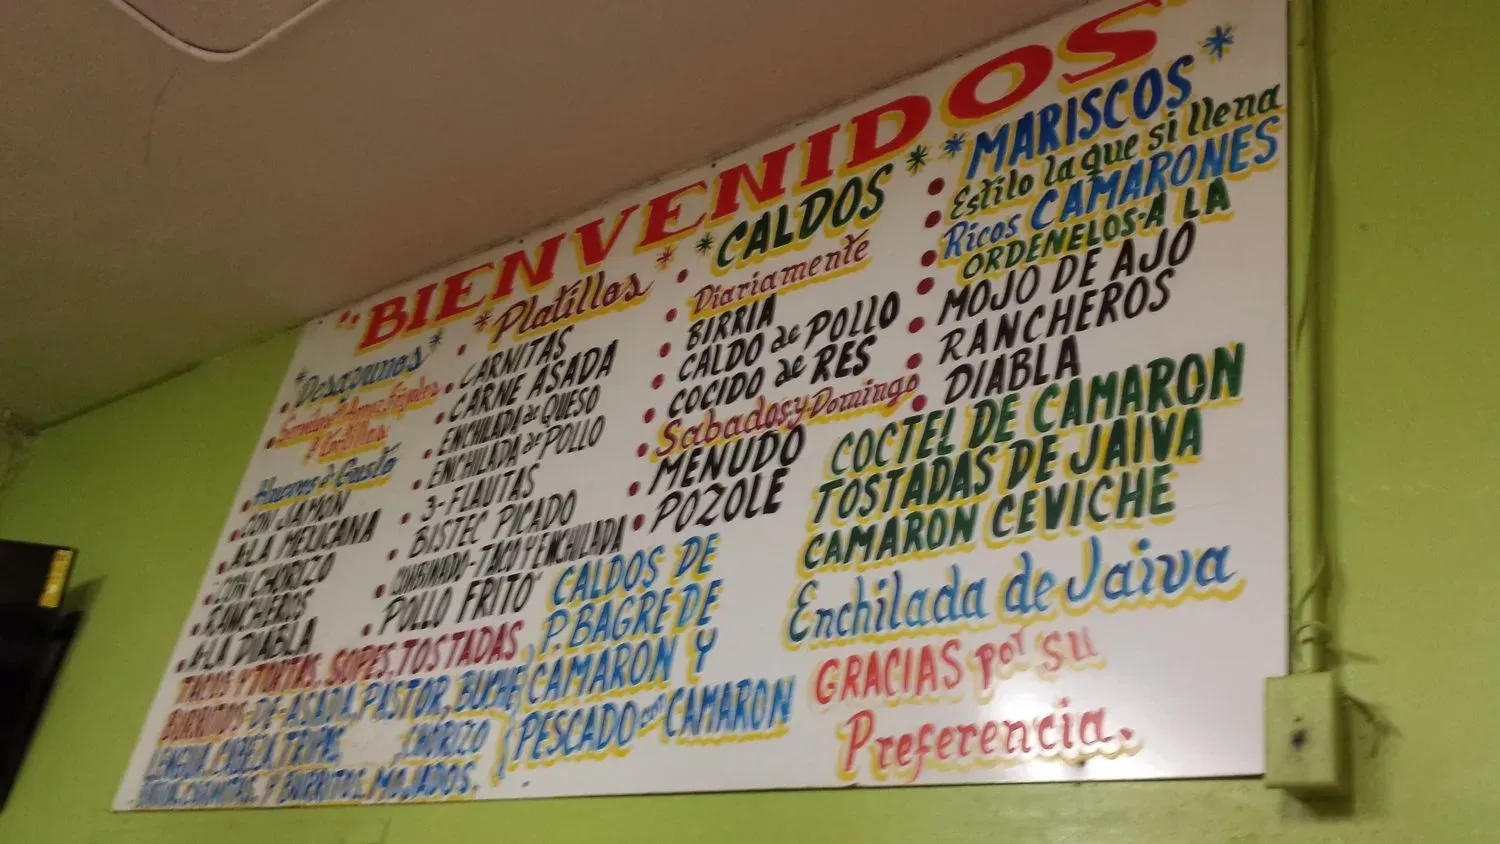 "BIENVENIDOS"
*Desayunos*
A tortillas
Huevos a Gusto
CON JAMON
A-LA MEXICANA
CON CHORIZO
RANCHEROS
A-LA DIABLA
*Platillos*
CARNITAS
CARNE ASADA
ENCHILADA de QUESO
ENCHILADA de POLLO
3-FLAUTAS
BISTEC PICADO
COMBINADO-TACO Y ENCHILADA
POLLO FRITO
TACOS Y TORTAS, SOPES, TOSTADAS
BURRITOS-DE-ASADA, PASTOR, BUCHE
LENGUA, CABEZA, TRIPAS, CHORIZO
CARNITAS, Y BURRITOS, MOJADOS.
*CALDOS*
Diariamente
BIRRIA
CALDO de POLLO
COCIDO de RES
Sabados y Domingo
MENUDO
POZOLE
CALDOS DE
P. BAGRE DE
CAMARON Y
PESCADO con CAMARON
*MARISCOS*
Estilo la que si llena
Ricos CAMARONES
ORDENELOS-A LA
MOJO DE AJO
RANCHEROS
DIABLA
COCTEL DE CAMARON
TOSTADAS DE JAIVA
CAMARON CEVICHE
Enchilada de Jaiva
GRACIAS por su
Preferencia.